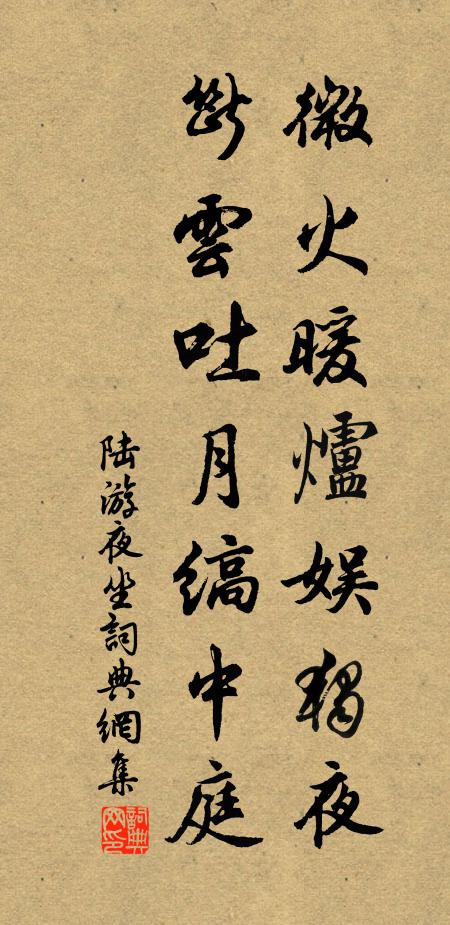 微火暖爐娱獨夜
斷雲吐月縞中庭
陆游夜坐詞典網集
詞典网印